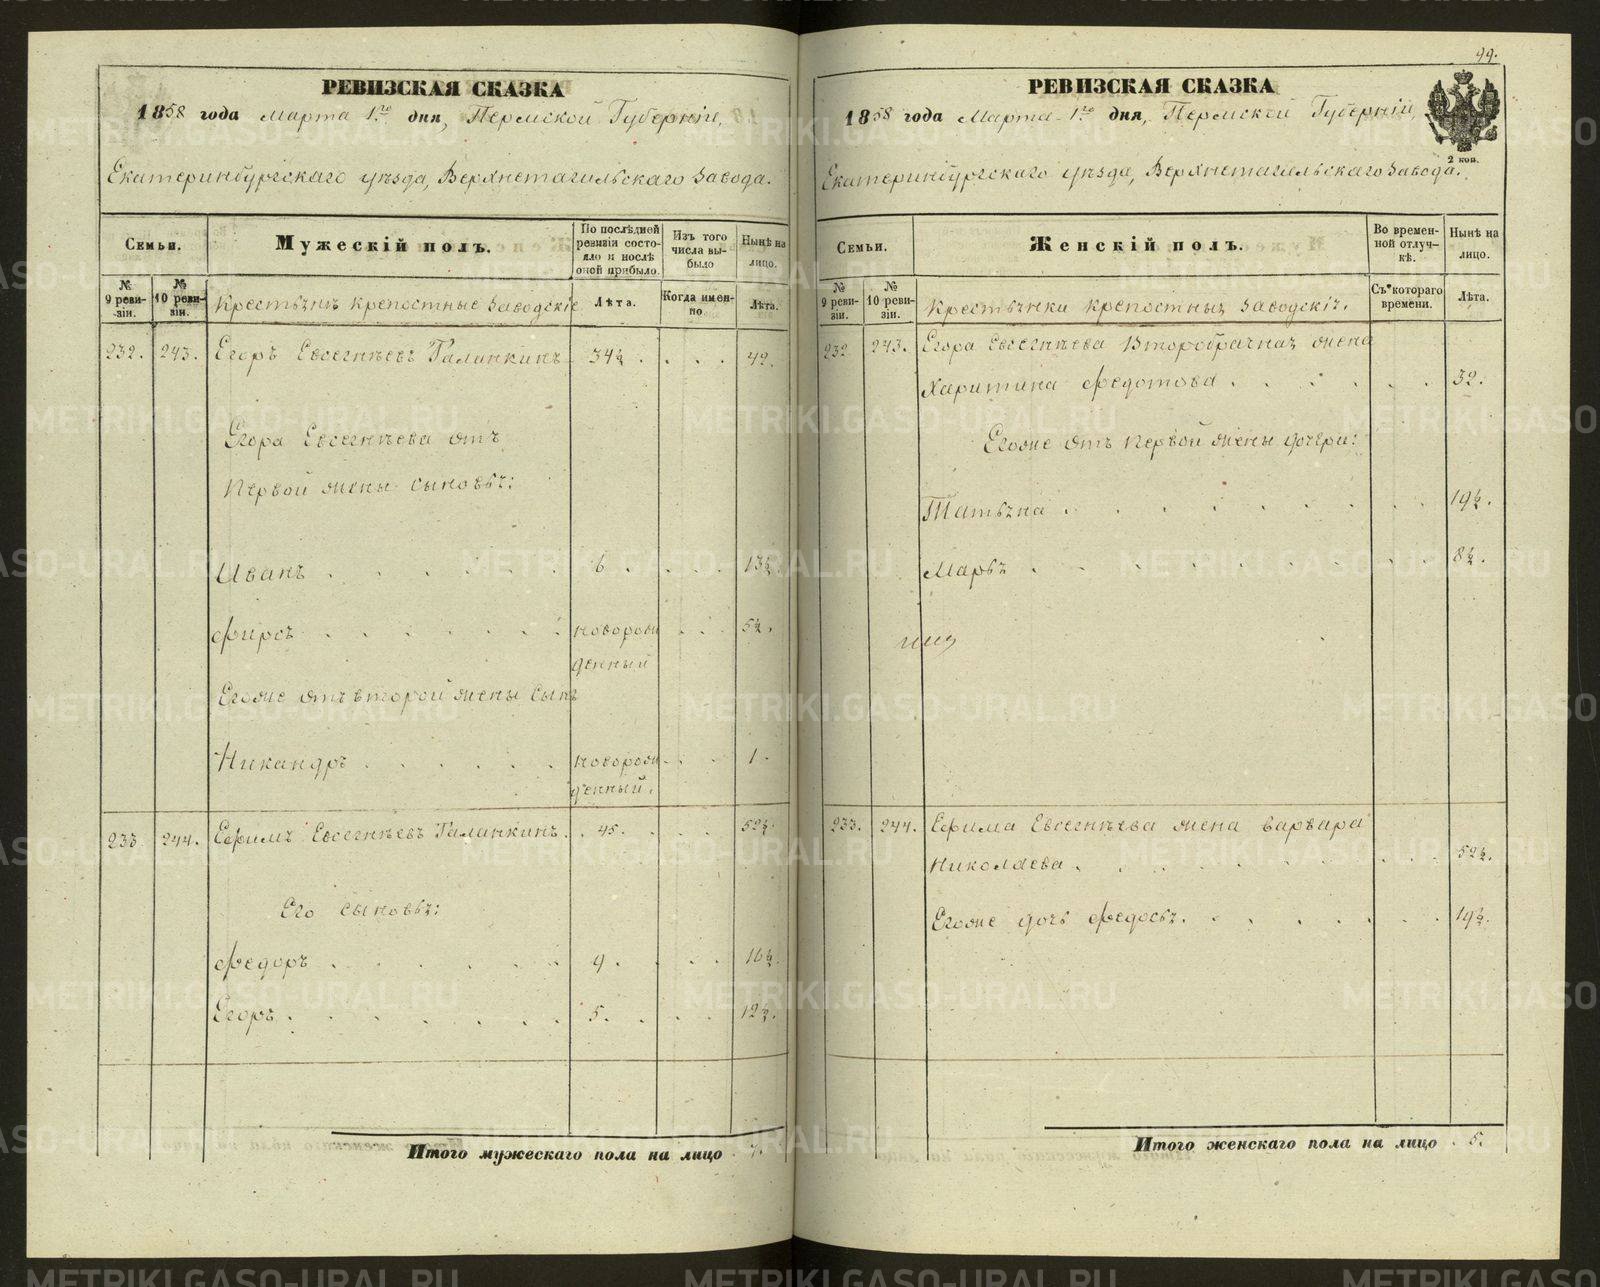 РЕВИЗСКАЯ СКАЗКА
1858 года марта 1го дня, Пермской Губерніи,
Екатеринбургскаго уѣзда, Верхнетагильскаго Завода.
Семьи.
Мужескій полъ.
По послѣдней ревизіи состояло и послѣ оной прибыло.
Изъ того числа выбыло
Нынѣ на лицо.
№ 9 ревизіи.
№ 10 ревизіи.
Крестьяне крепостные Заводскіе
Лѣта.
Когда именно
Лѣта.
232. 243. Егоръ Евсегнѣевъ Галанкинъ 34½ . . . . 42.
Егора Евсегнѣева отъ
первой жены сыновья:
Иванъ . . . . . . 6 . . . . 13½.
Фирсъ . . . . . . новорож . . 5½.
денный
Егоже отъ второй жены сынъ
Никандръ . . . . . новорож . . . 1.
денный.
233. 244. Ефимъ Евсегнѣевъ Галанкинъ. . 45. . . . 52½.
Его сыновья:
Федоръ . . . . . . 9 . . . . 16½.
Егоръ . . . . . . . 5. . . . 12½.
Итого мужескаго пола на лицо . 7.
99.
РЕВИЗСКАЯ СКАЗКА
1858 года Марта 1го дня, Пермской Губерніи,
2 коп.
Екатеринбургскаго уѣзда, Верхнетагильскаго Завода.
Семьи.
Женскій полъ.
Во временной отлучкѣ.
Нынѣ на лицо.
№ 9 ревизіи.
№ 10 ревизіи.
Крестьянки крепостныя Заводскія.
Съ котораго времени.
Лѣта.
232 243. Егора Евсегнѣева второбрачная жена
Харитина Федотова . . . . . . . 32.
Егоже отъ первой жены дочери:
Татьяна . . . . . . . . . 19½.
Марья . . . . . . . . . . 8½.
233. 244. Ефима Евсегнѣева жена Варвара
Николаева . . . . . . . . . . 52½.
Егоже дочь Федосья. . . . . . . . 19½.
Итого женскаго пола на лицо . 5.
METRIKI.GASO-URAL.RU